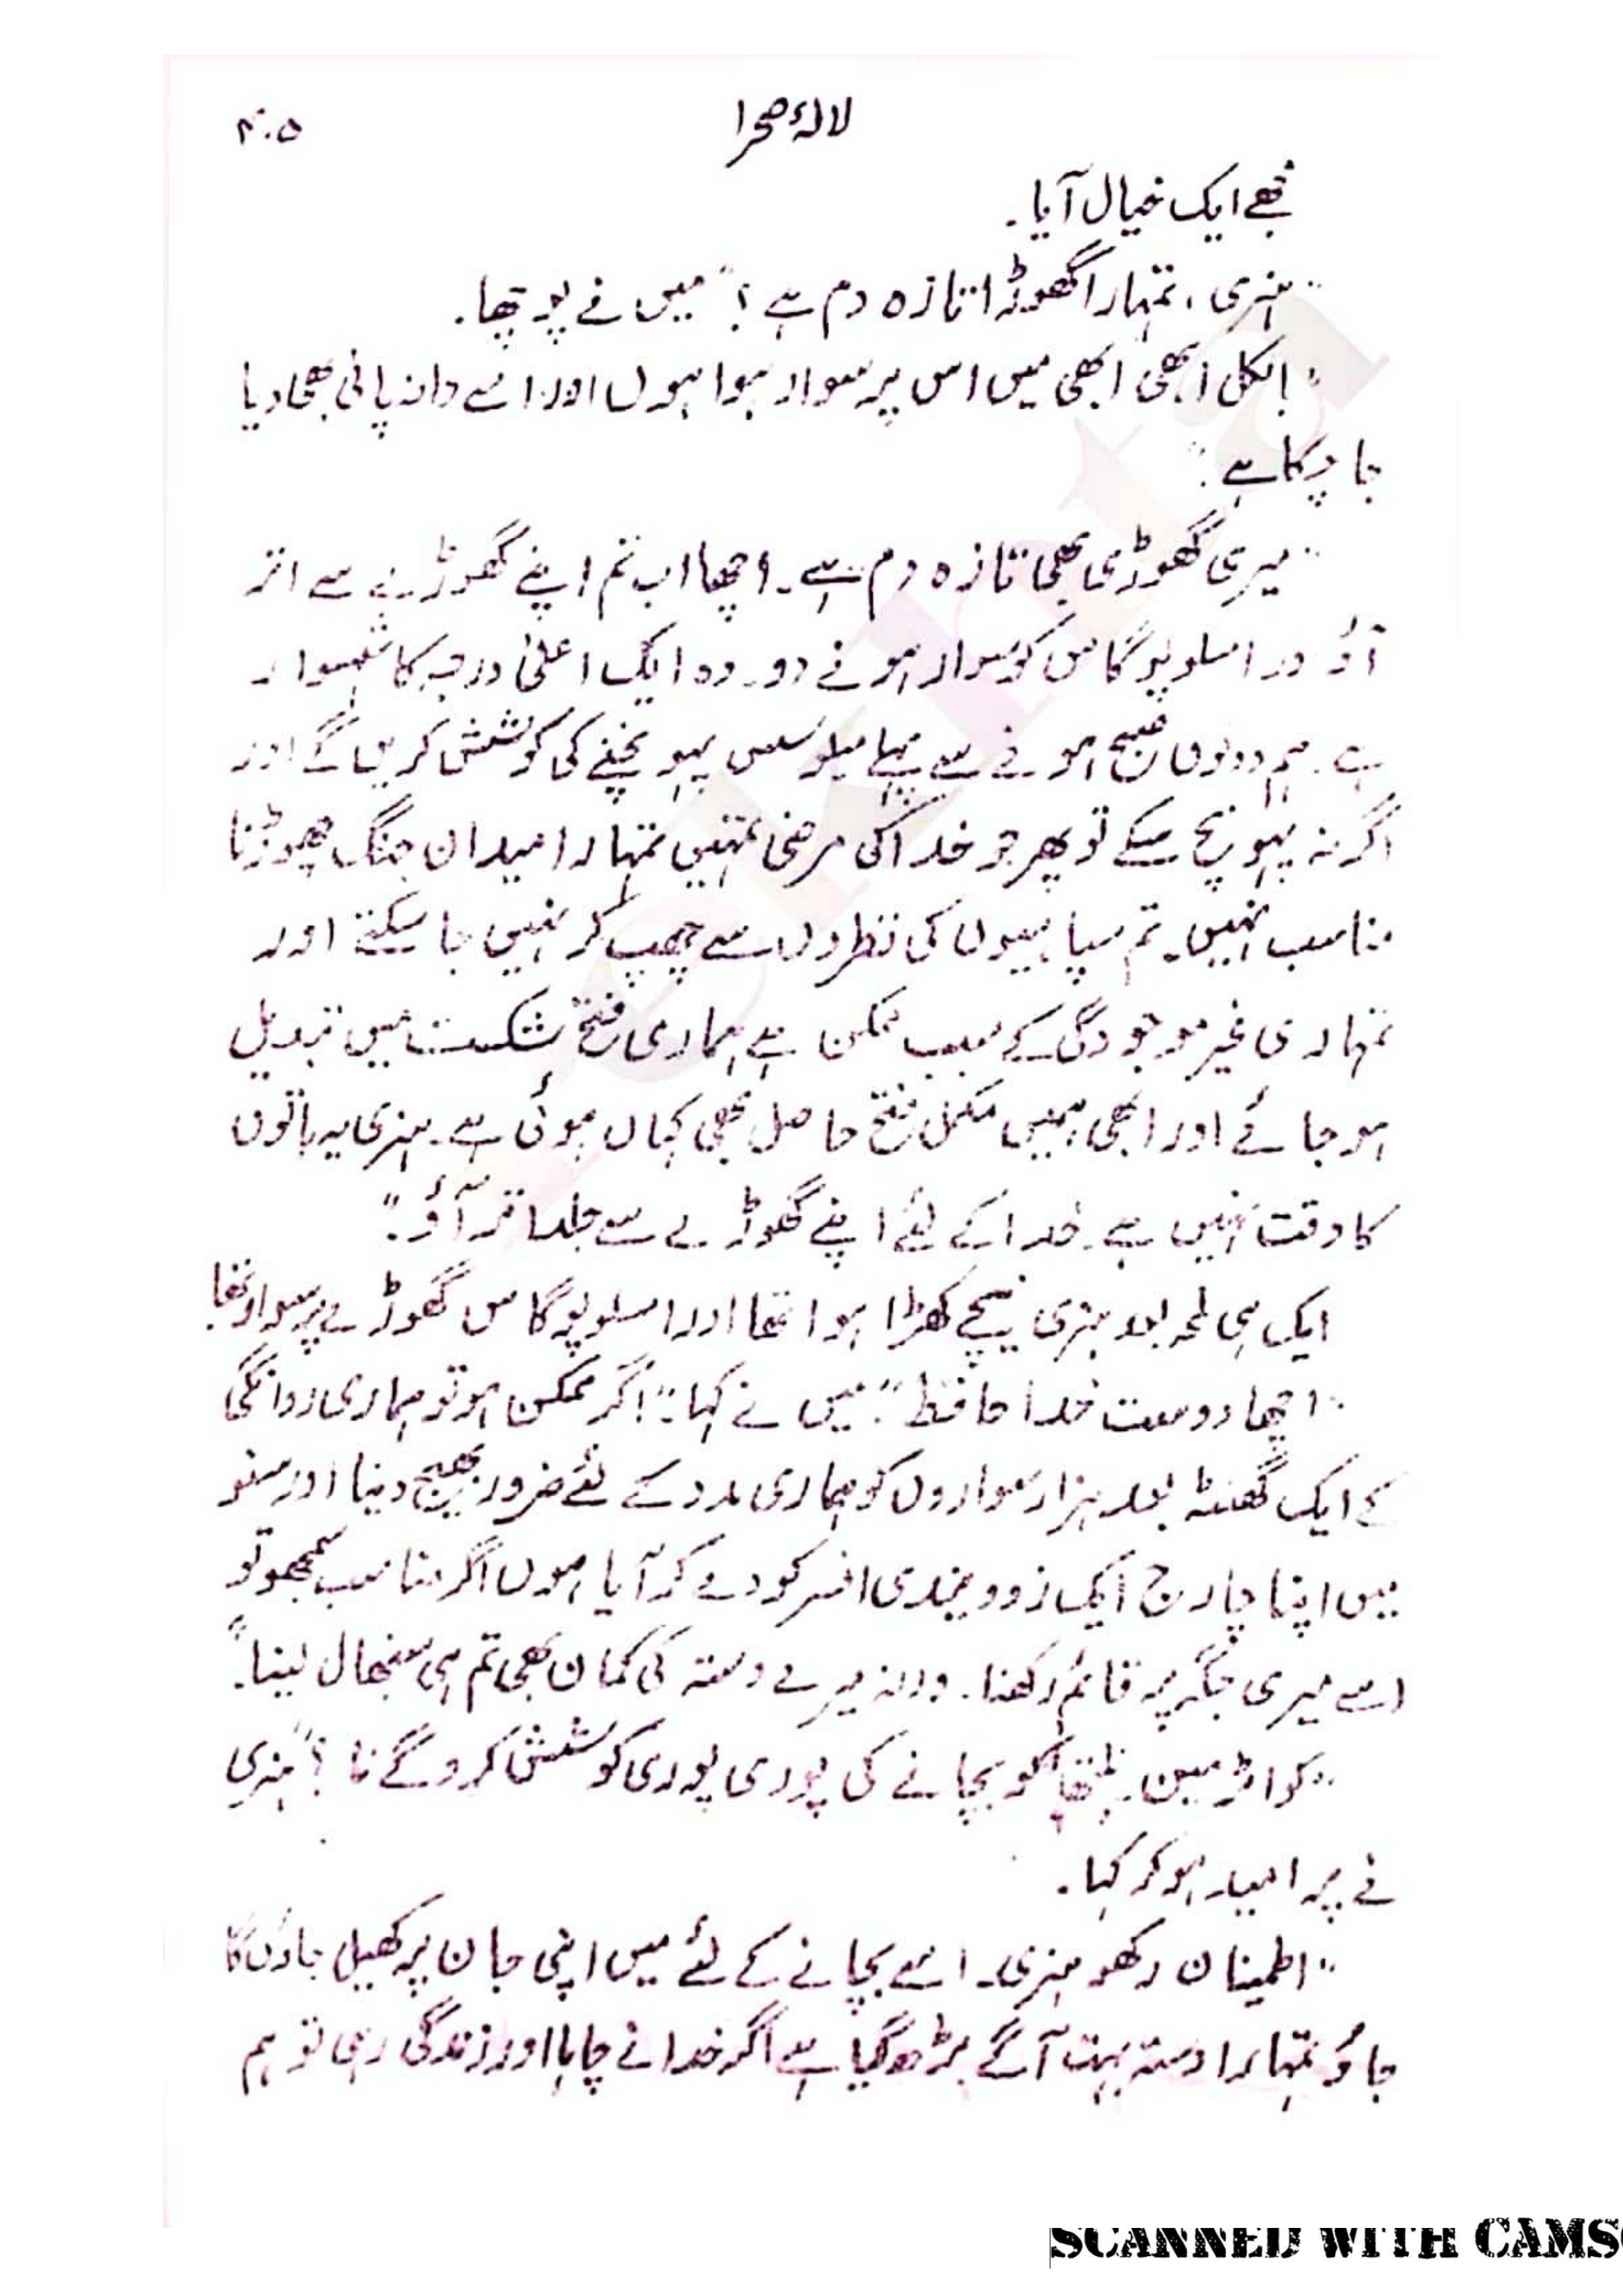 لالۂ صحرا ۴۰۵
مجھے ایک خیال آیا۔
"ہنری، تمہارا گھوڑا تازہ دم ہے؟" میں نے پوچھا۔
"بالکل ابھی ابھی میں اس پر سوار ہوا ہوں اور اسے دانہ پانی بھی دیا
جا چکا ہے۔"
"میری گھوڑی بھی تازہ دم ہے۔ اچھا اب تم اپنے گھوڑے سے اتر
آؤ اور امسلوپوگاس کو سوار ہونے دو۔ وہ ایک اعلیٰ درجہ کا شہسوار
ہے۔ ہم دونوں صبح ہونے سے پہلے میلوسس پہونچنے کی کوشش کریں گے اور
اگر نہ پہونچ سکے تو پھر جو خدا کی مرضی تمہیں تمہارا میدان جنگ چھوڑنا
مناسب نہیں۔ تم سپاہیوں کی نظروں سے چھپ کر نہیں جا سکتے اور
تمہاری غیر موجودگی کے سبب ممکن ہے ہماری فتح شکست میں تبدیل
ہو جائے اور ابھی ہمیں مکمل فتح حاصل بھی کہاں ہوئی ہے۔ ہنری یہ باتوں
کا وقت نہیں ہے۔ خدا کے لئے اپنے گھوڑے سے جلد اتر آؤ۔"
ایک ہی لمحہ بعد ہنری نیچے کھڑا ہوا تھا اور امسلوپوگاس گھوڑے پر سوار تھا
"اچھا دوست خدا حافظ" میں نے کہا۔ "اگر ممکن ہو تو ہماری روانگی
کے ایک گھنٹہ بعد ہزار سواروں کو ہماری مدد کے لئے ضرور بھیج دینا اور سنو
میں اپنا چارج ایک زوویندی افسر کو دے کر آیا ہوں اگر مناسب سمجھو تو
اسے میری جگہ پر قائم رکھنا۔ ورنہ میرے دستہ کی کمان بھی تم ہی سنبھال لینا۔"
"کواٹرمین نلپتھا کو بچانے کی پوری پوری کوشش کرو گے نا؟" ہنری
نے پر امید ہو کر کہا۔
"اطمینان رکھو ہنری۔ اسے بچانے کے لئے میں اپنی جان پر کھیل جاؤں گا
جاؤ تمہارا دستہ بہت آگے بڑھ گیا ہے اگر خدا نے چاہا اور زندگی رہی تو ہم
SCANNED WITH CAMS